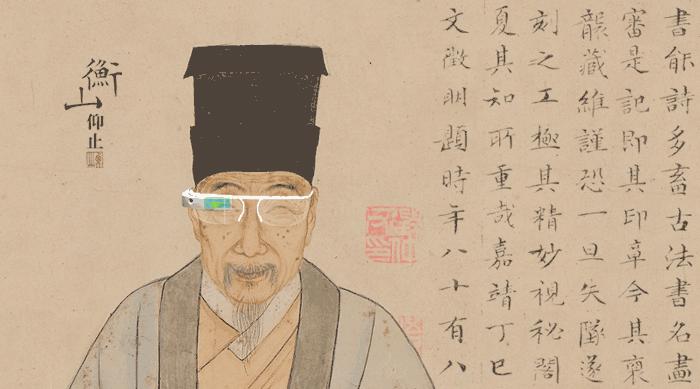 書能詩多畜古法書名畫
審是記即其印章今其
襲藏維謹恐一旦失墜遂
刻之工極其精妙視秘閣
夏其知所重哉嘉靖丁巳
文徵明題時年八十有八
衡山
仰止